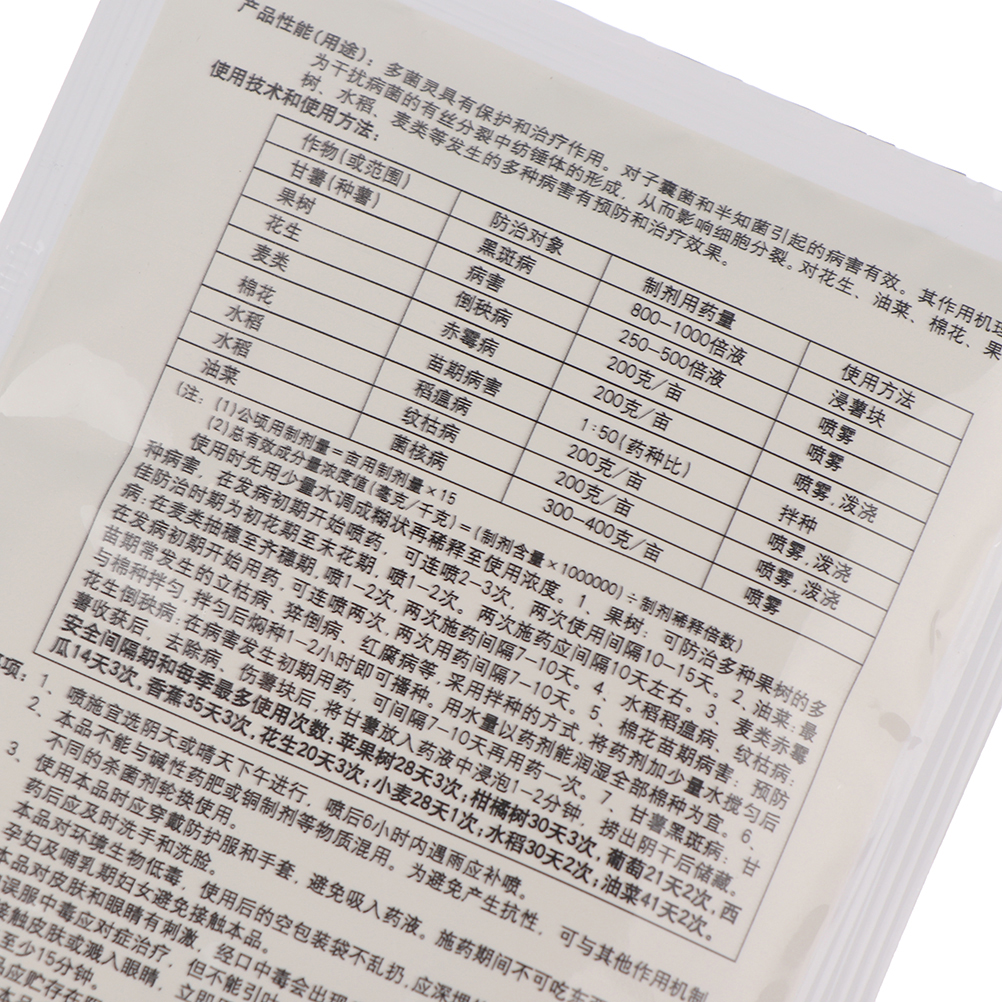 产品性能(用途)：多菌灵具有保护和治疗作用。对子囊菌和半知菌引起的病害有效。其作用机理
为干扰病菌的有丝分裂中纺锤体的形成，从而影响细胞分裂。对花生、油菜、棉花、果
树、水稻、麦类等发生的多种病害有预防和治疗效果。
使用技术和使用方法：
作物(或范围) 防治对象 制剂用药量 使用方法
甘薯(种薯) 黑斑病 800-1000倍液 浸薯块
果树 病害 250-500倍液 喷雾
花生 倒秧病 200克/亩 喷雾
麦类 赤霉病 200克/亩 喷雾,泼浇
棉花 苗期病害 1:50(药种比) 拌种
水稻 稻瘟病 200克/亩 喷雾,泼浇
水稻 纹枯病 200克/亩 喷雾,泼浇
油菜 菌核病 300-400克/亩 喷雾
(注：(1)公顷用制剂量＝亩用制剂量×15
(2)总有效成分量浓度值(毫克/千克)＝(制剂含量×1000000)÷制剂稀释倍数)
使用时先用少量水调成糊状再稀释至使用浓度。1、果树：可防治多种果树的多
种病害，在发病初期开始喷药，可连喷2-3次，两次使用间隔10-15天。2、油菜：最
佳防治时期为初花期至末花期，喷1-2次。两次施药应间隔10天左右。3、麦类赤霉
病：在麦类抽穗至齐穗期,喷1-2次,两次施药间隔7-10天。4、水稻稻瘟病、纹枯病：
在发病初期开始用药,可连喷两次,两次用药间隔7-10天。5、棉花苗期病害：预防
苗期常发生的立枯病、猝倒病、红腐病等，采用拌种的方式,将药剂加少量水搅匀后
与棉种拌匀,拌匀后焖种1-2小时即可播种。用水量以药剂能润湿全部棉种为宜。6、
花生倒秧病：在病害发生初期用药，可间隔7-10天再用药一次。7、甘薯黑斑病：甘
薯收获后，去除病、伤薯块后，将甘薯放入药液中浸泡1-2分钟，捞出阴干后储藏。
安全间隔期和每季最多使用次数:苹果树28天3次,柑橘树30天3次，葡萄21天2次,西
瓜14天3次,香蕉35天3次,花生20天3次;小麦28天1次;水稻30天2次;油菜41天2次。
项：1、喷施宜选阴天或晴天下午进行，喷后6小时内遇雨应补喷。
2、本品不能与碱性药肥或铜制剂等物质混用，为避免产生抗性，可与其他作用机制
不同的杀菌剂轮换使用。
3、使用本品时应穿戴防护服和手套，避免吸入药液。施药期间不可吃东西
药后应及时洗手和洗脸。
本品对环境生物低毒，使用后的空包装袋不乱扔,应深埋
孕妇及哺乳期妇女避免接触本品。
本品对皮肤和眼睛有刺激，经口中毒会出现
误服中毒应对症治疗，但不能引吐
接触皮肤或溅入眼睛，立即
至少15分钟。
品应贮存在